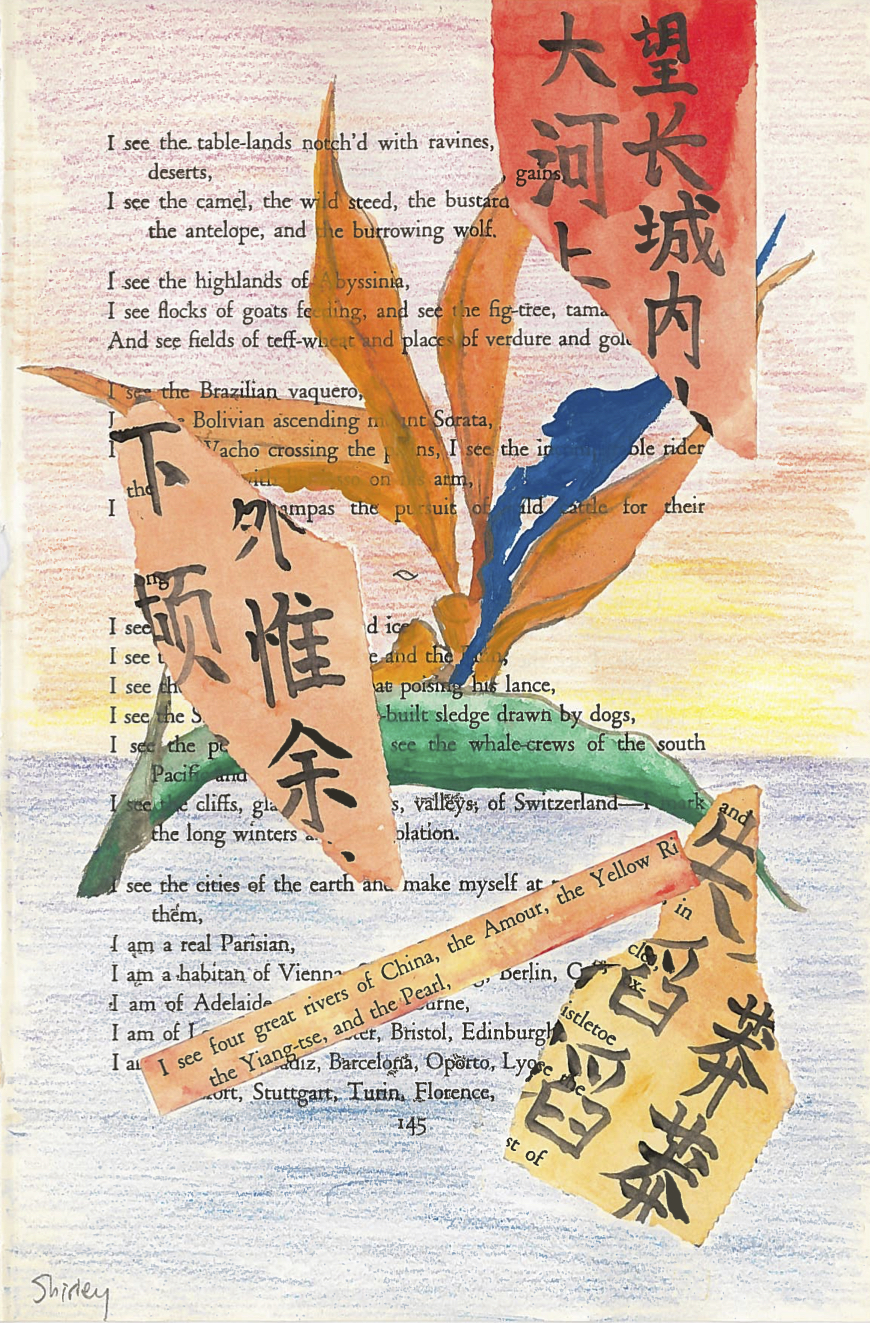 望长城内
大河上
I see the table-lands notch'd with ravines,
deserts,
gains,
I see the camel, the wild steed, the bustard
the antelope, and the burrowing wolf.
I see the highlands of Abyssinia,
I see flocks of goats feeding, and see the fig-tree, tama
And see fields of teff-wheat and places of verdure and gold
I see the Brazilian vaquero,
Bolivian ascending mount Sorata,
I Wacho crossing the plains, I see the incomparable rider
the with lasso on his arm,
I pampas the pursuit of wild cattle for their
下
外
顿
惟
余
ong
I see d ice
I see t e and the
I see th at poising his lance,
I see the S -built sledge drawn by dogs,
I see the po see the whale-crews of the south
Pacific and
I see the cliffs, gla s, valleys, of Switzerland—I mark
the long winters a olation.
I see the cities of the earth and make myself at
them,
I am a real Parisian,
I am a habitan of Vienna, Berlin,
I am of Adelaide urne,
I am of ter, Bristol, Edinburgh
I am adiz, Barcelona, Oporto, Lyo
ort, Stuttgart, Turin, Florence,
145
I see four great rivers of China, the Amour, the Yellow Ri
the Yiang-tse, and the Pearl,
and
in
istletoe
se the
st of
失
滔
滔
莽
莽
Shirley